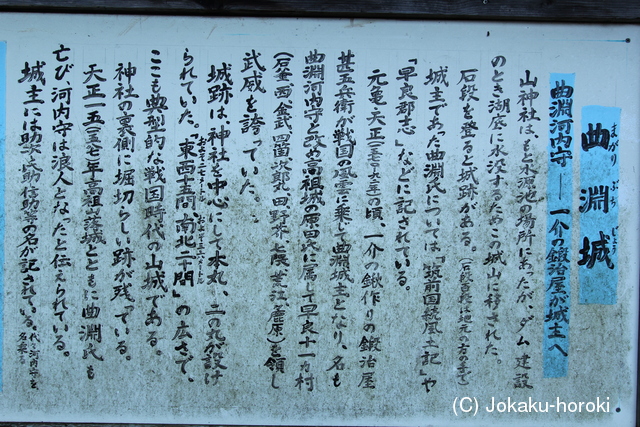 曲淵城
まがり ぶち じょう
曲淵河内守 ― 一介の鍛冶屋が城主へ
山神社は、もと水源池の場所にあったが、ダム建設
のとき湖底に水没するためこの城山に移された。
石段を登ると城跡がある。
城主であった曲淵氏については「筑前国続風土記」や
「早良郡志」などに記されている。
元亀・天正の頃、一介の鍬作りの鍛冶屋
甚五兵衛が戦国の風雲に乗じて曲淵城主となり、名も
曲淵河内守と改め高祖城原田氏に属して早良十一カ村
を領し
武威を誇っていた。
城跡は、神社を中心にして本丸、二の丸が設け
られていた。「東西十五間、南北二十間」の広さで、
ここも典型的な戦国時代の山城である。
神社の裏側に堀切らしい跡が残っている。
天正一五(一五八七)年高祖山落城とともに曲淵氏も
亡び河内守は浪人となったと伝えられている。
城主には助次、氏助、信助等の名が記されている。
(C) Jokaku-horoki